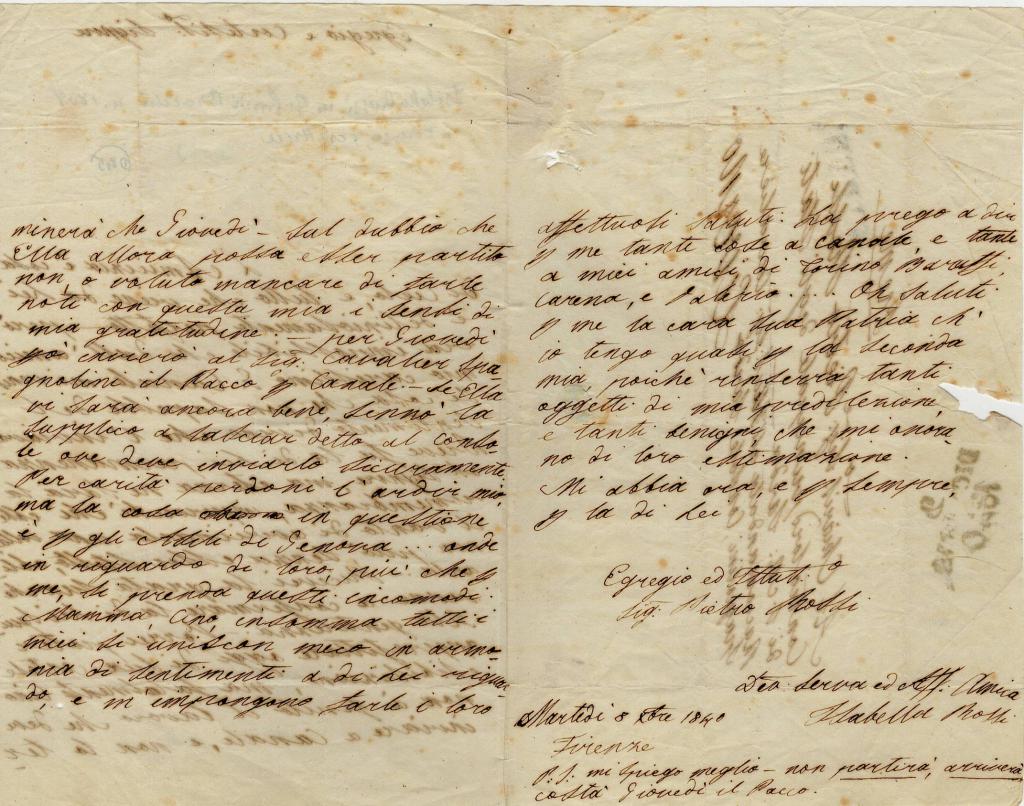 minerà che Giovedì - sul dubbio che
Ella allora possa esser partito
non ò voluto mancare di farle
noti con questa mia i sensi di
mia gratitudine - per Giovedì
pò invierò al Sig. Cavalier Spa
gnolini il Pacco p Canale - se Ella
vi sarà ancora bene, sennò la
supplico a lasciar detto al Conso
le ove deve inviarlo sicuramente
Per carità perdoni l'ardir mio,
ma la cosa in questione
è p gli Asili di Genova ... onde
in riguardo di loro, più che p
me, si prenda questi incomodi.
Mamma, Cino, insomma tutti i
miei si uniscon meco in armo
nia di sentimenti a di Lei riguar
do, e m'impongono farle i loro
affettuosi saluti. La prego a dir
p me tante cose a Canale, e tante
a miei amici di Torino Baruffi,
Carena, e Valerio.... Oh saluti
p me la cara sua Patria ch'
io tengo quasi p la seconda
mia, poichè rinserra tanti
oggetti di mia predilezione,
e tanti benigni che mi onora
no di loro estimazione.
Mi abbia ora, e p sempre,
p la di Lei
Egregio ed Illust.o
Sig. Pietro Rossi
Dev. Serva ed Aff. Amica
Isabella Rossi
Martedì 8 Xbre 1840
Firenze
P.S. mi spiego meglio - non partirà, arriverà
costà Giovedì il Pacco.
DIC